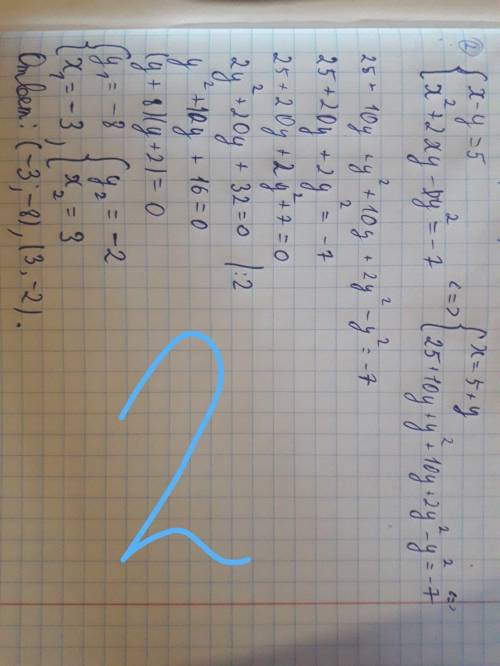 ② { x - y = 5
{ x² + 2xy - y² = -7 <=> { x = 5 + y
{ 25 + 10y + y² + 10y + 2y² - y² = -7 <=>
25 + 10y + y² + 10y + 2y² - y² = -7
25 + 20y + 2y² = -7
25 + 20y + 2y² + 7 = 0
2y² + 20y + 32 = 0 |:2
y² + 10y + 16 = 0
(y + 8)(y + 2) = 0
{ y₁ = -8 { y₂ = -2
{ x₁ = -3, { x₂ = 3
Ответ: (-3; -8), (3, -2).
2